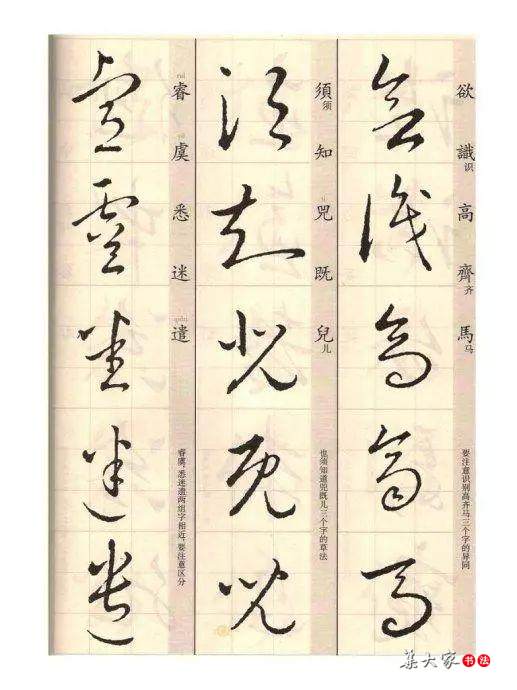 欲識识高齊齐馬马
要注意识别高齐马三个字的异同
欲識高齊馬
須须知兕既兒儿
也须知道兕既儿三个字的草法
須知兕既兒
睿虞悉迷遣
睿虞、悉迷遣两组字相近，要注意区分
睿虞悉迷遣
集大家书法